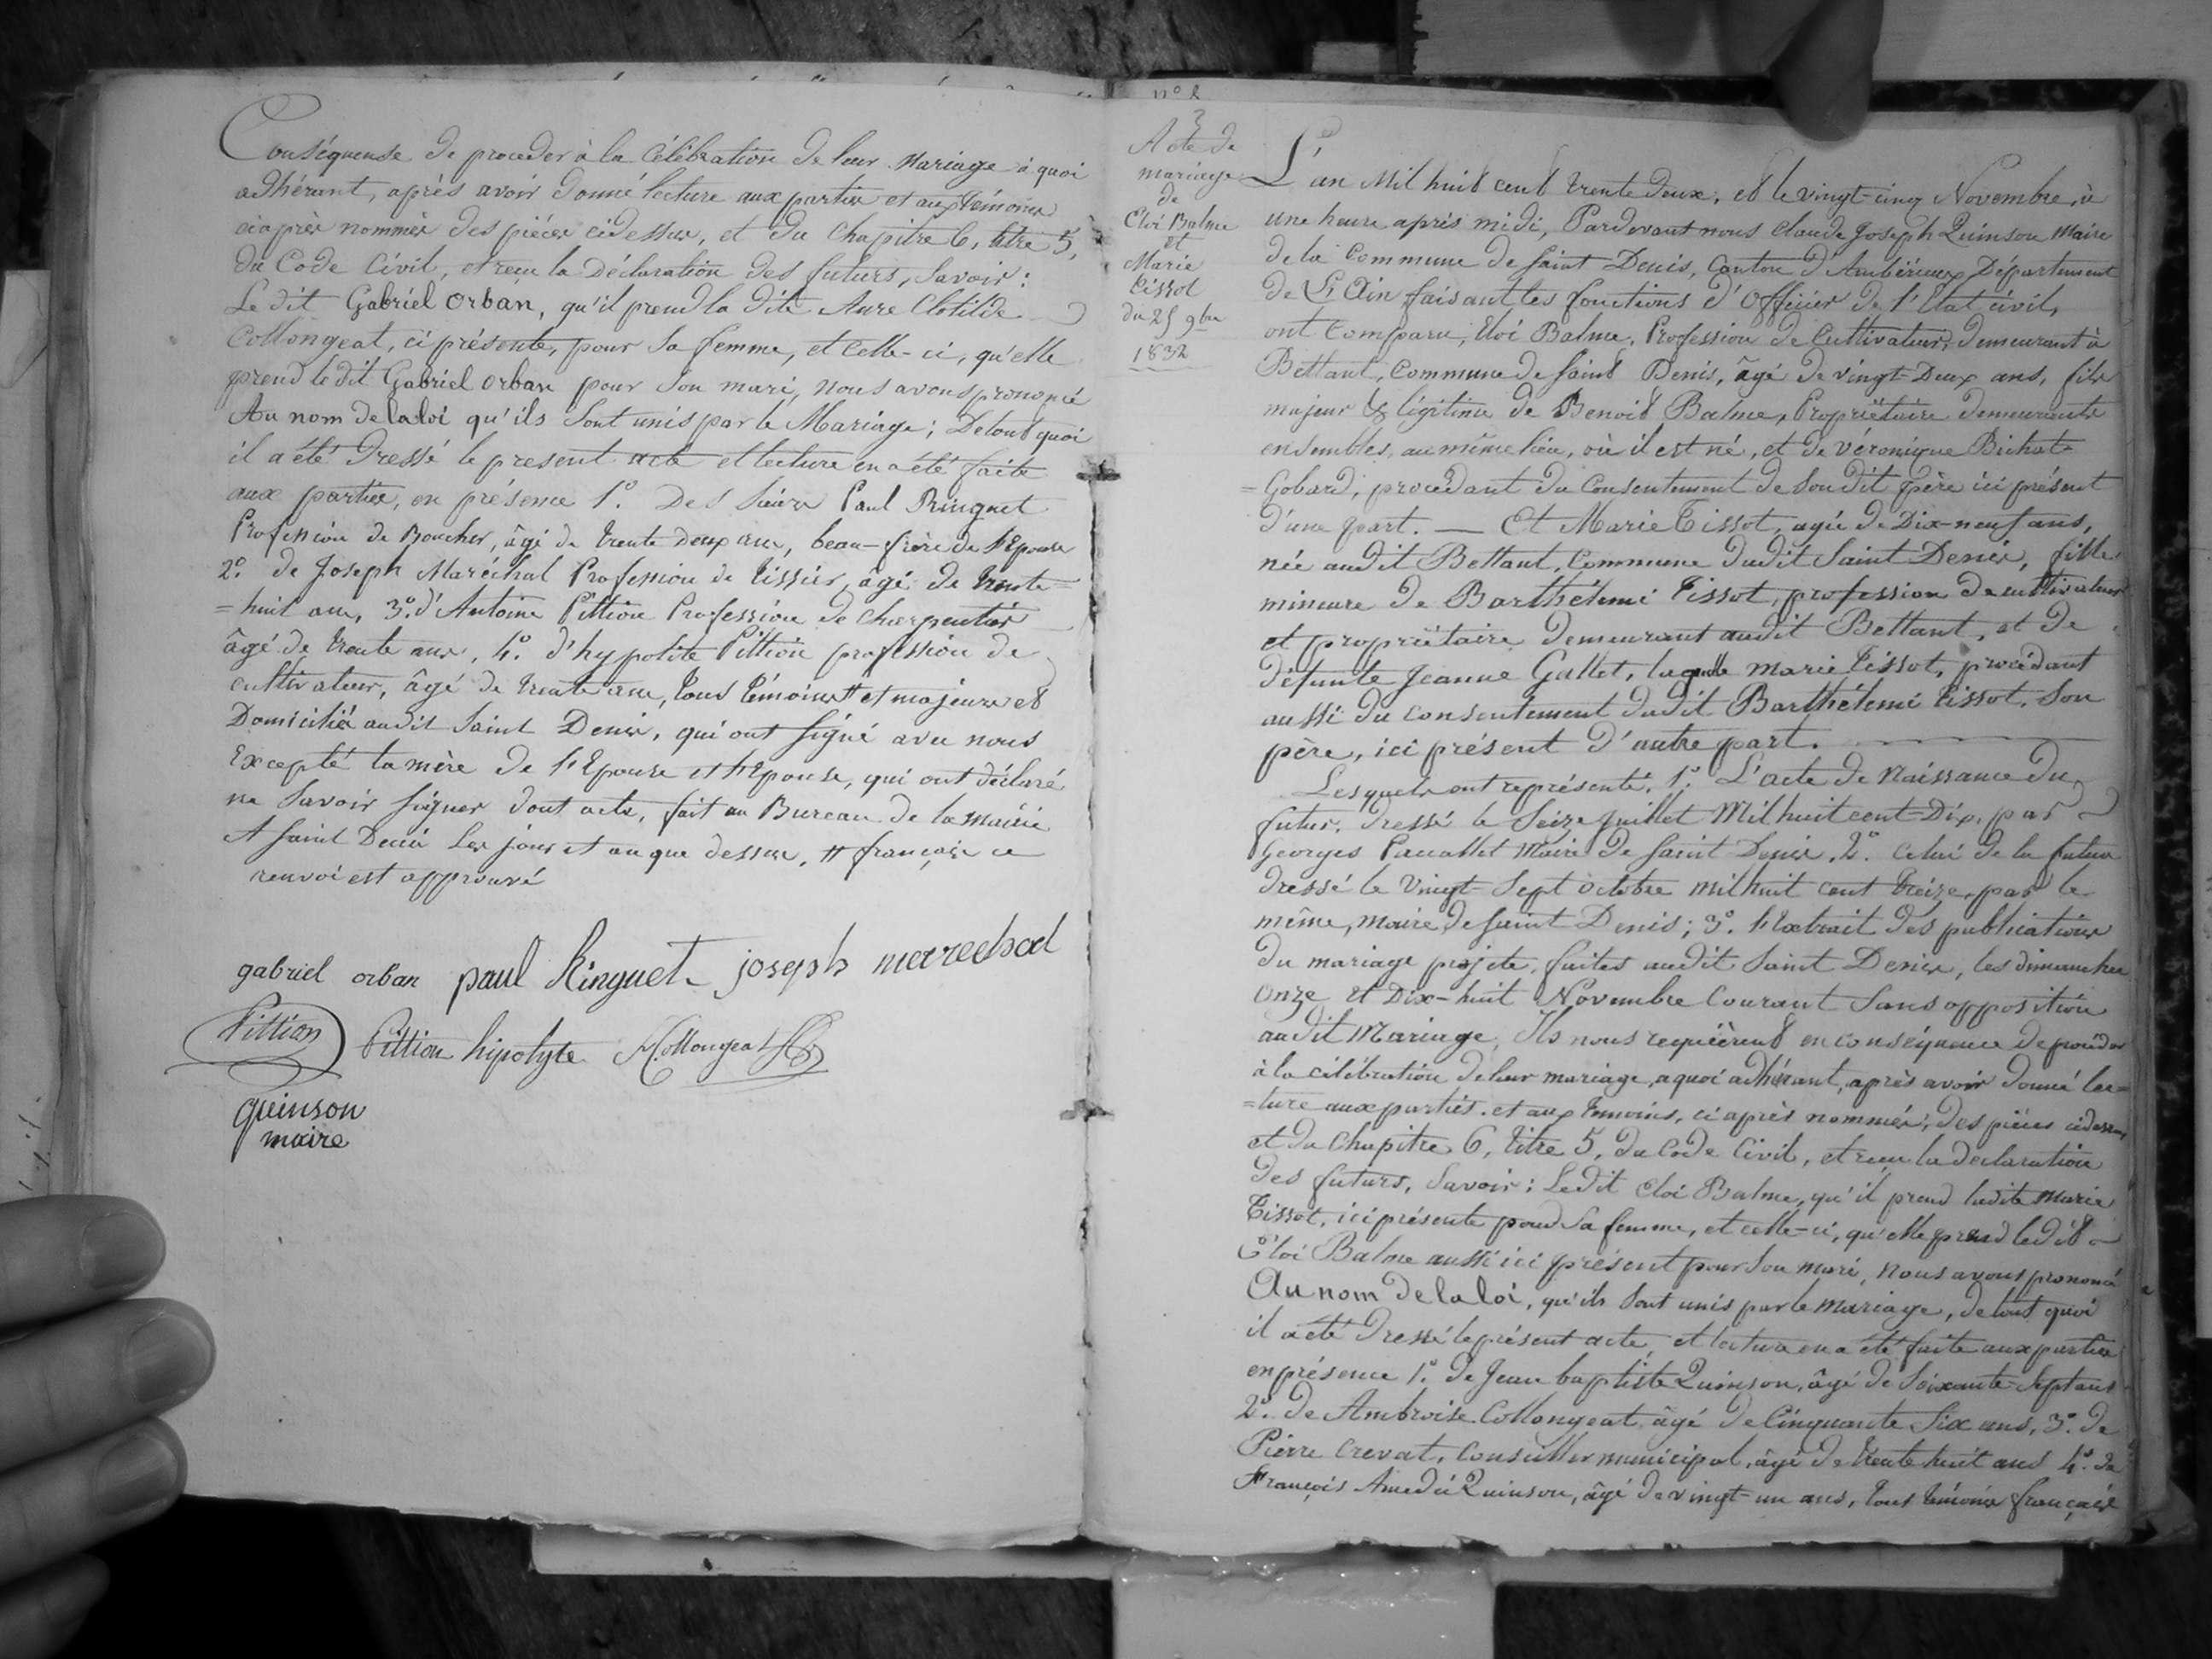 Conséquense de proceder à la Célébration de leur Mariage à quoi
adhérant, après avoir donné lecture aux parties et aux témoins
ciaprès nommés des pièces cidessus, et du Chapitre 6, titre 5,
du Code Civil, et reçu la Déclaration des futurs, Savoir :
Le dit Gabriel Orban, qu'il prend la dite Aure Clotilde
Collongeat, ci présente, pour Sa femme, et Celle-ci, qu'elle
prend ledit Gabriel Orban pour Son mari, nous avons prononcé
Au nom de la loi qu'ils Sont unis par le Mariage ; De tout quoi
il a été Dressé le present acte et lecture en a été faite
aux parties, en présence 1.° Des Sieurs Paul Ringuet
Profession de Boucher, âgé de trente deux ans, beau-frère de l'Epouse
2.° de Joseph Maréchal Profession de Tissier, âgé de trente-
=huit ans, 3.° d'Antoine Pittion Profession de Charpentier
âgé de trente ans, 4.° d'hypolite Pittion profession de
cultivateur, âgé de trente ans, tous témoins # et majeurs et
Domiciliés audit Saint Denis, qui ont Signé avec nous
Excepté la mère de l'Epouse et l'Epouse, qui ont déclaré
ne Savoir Signer dont acte, fait au Bureau de la Mairie
A Saint Denis Les jour et an que dessus, # français ce
renvoi est approuvé
gabriel orban paul Ringuet joseph marechal
Pittion Pittion hipolyte Collongeat
quinson
maire
3
Acte de
mariage
de
Eloi Balme
et
Marie
Tissot
du 25 9bre
1832
L'an Mil huit cent trente deux, et le vingt-cinq Novembre, à
une heure après midi, Pardevant nous Claude Joseph Quinson Maire
de la Commune de Saint Denis, Canton d'Ambérieux Département
de L'Ain faisant les fonctions d'Officier de l'Etat civil,
ont Comparu, Eloi Balme, Profession de Cultivateur, demeurant à
Bettant, Commune de Saint Denis, âgé de vingt-Deux ans, fils
majeur & légitime de Benoit Balme, Propriétaire demeurants
ensembles, au même lieu, où il est né, et de véronique Bichat-
=Gobard, procédant du Consentement de Son dit père ici présent
d'une part. — Et Marie Tissot, agée de Dix-neuf ans,
née audit Bettant, Commune dudit Saint Denis, fille
mineure de Barthélemi Tissot, profession de cultivateur
et propriétaire demeurant audit Bettant, et de
défunte Jeanne Gallet, laquelle marie Tissot, procédant
aussi du consentement dudit Barthélemi Tissot, Son
père, ici présent d'autre part.
Lesquels ont représenté, 1.° L'acte de Naissance du
futur, dressé le Seize Juillet Mil huit cent-Dix, par
Georges Pacallet Maire de Saint Denis, 2.° Celui de la future
dressé le Vingt-Sept Octobre mil huit cent treize, par le
même, Maire de Saint Denis ; 3.° l'Extrait des publications
du mariage projeté, faites audit Saint Denis, les dimanches
Onze et Dix-huit Novembre Courant Sans opposition
audit Mariage, Ils nous requièrent en conséquence de procéder
à la célébration de leur mariage, a quoi adhérant, après avoir donné lec=
=ture aux parties, et aux témoins, ci après nommés, des pièces cidessus,
et du Chapitre 6, titre 5, du Code Civil, et reçu la déclaration
des futurs, Savoir : Ledit Eloi Balme, qu'il prend ladite Marie
Tissot, ici présente pour Sa femme, et celle-ci, qu'elle prend ledit
Eloi Balme aussi ici présent pour Son mari, nous avons prononcé
Au nom de la loi, qu'ils Sont unis par le mariage, de tout quoi
il a été Dressé le présent acte, et lecture en a été faite aux parties
en présence 1.° de Jean baptiste Quinson, âgé de Soixante-Sept ans
2.° de Ambroise Collongeat, âgé de Cinquante Six ans, 3.° de
Pierre Crevat, Conseiller municipal, âgé de trente huit ans 4.° de
François Amedé Quinson, âgé de vingt-un ans, tous témoins français